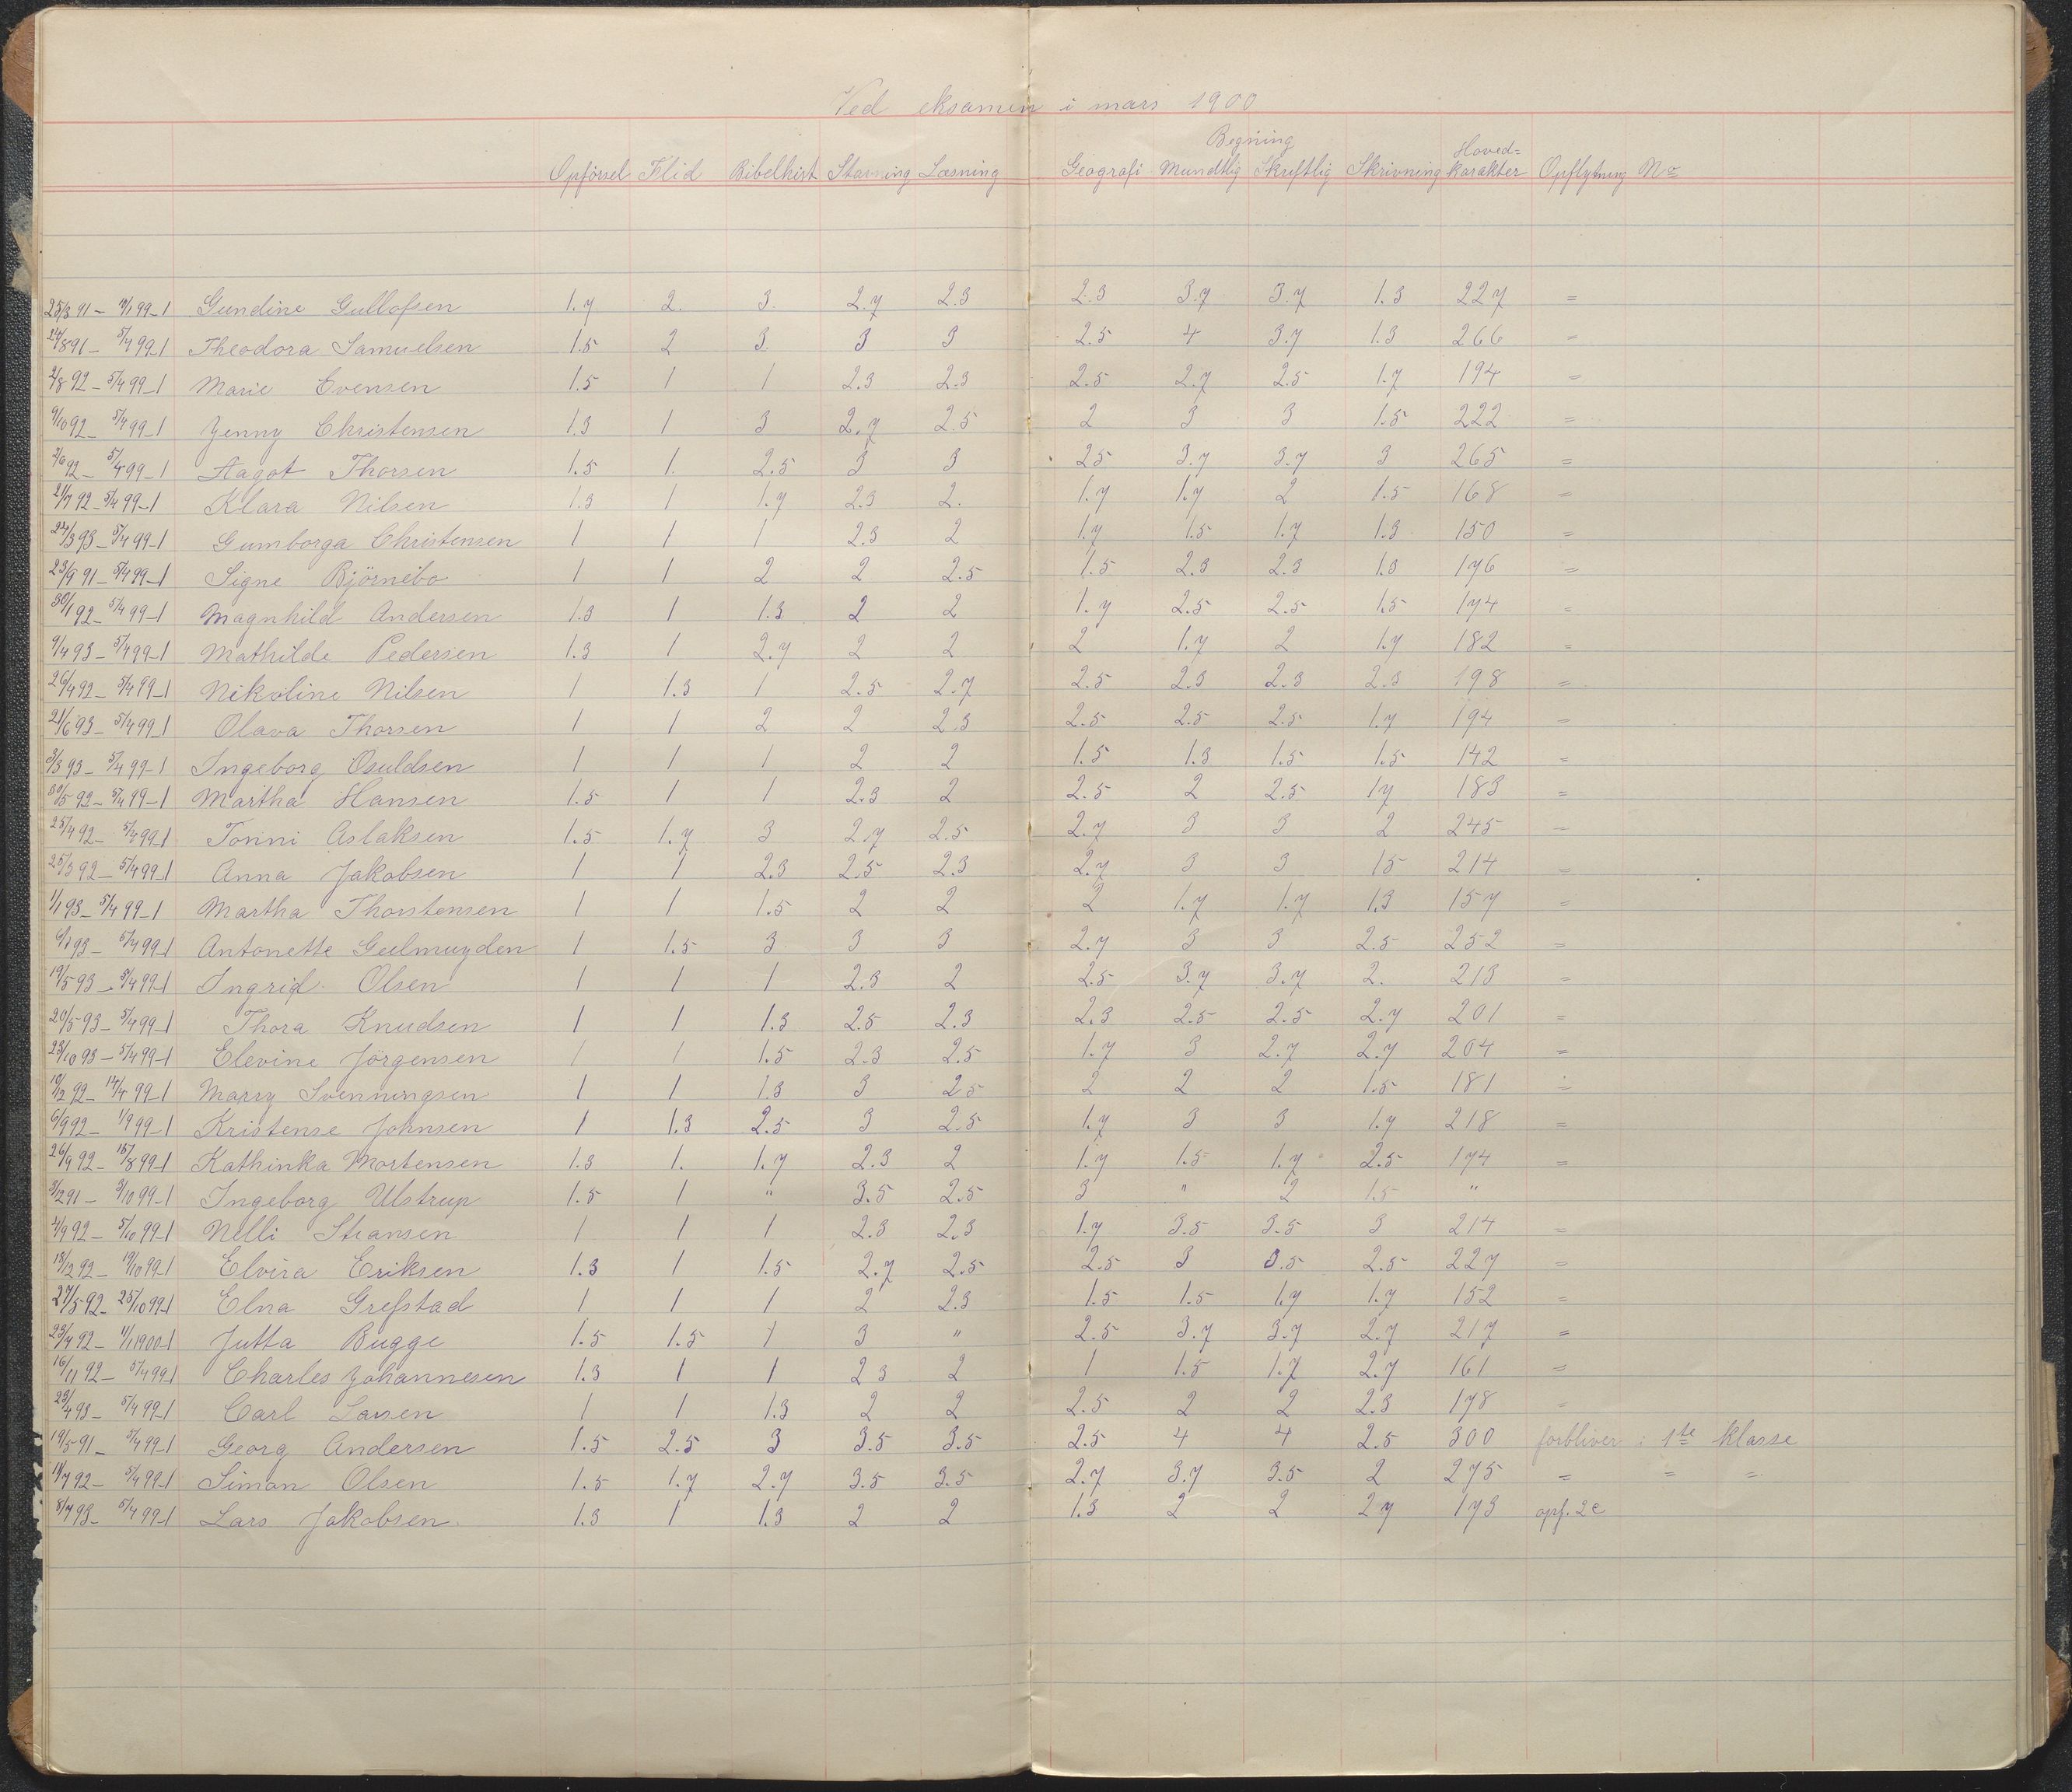 Ved eksamen i mars 1900
Regning
Hoved=
Opførsel Flid Bibelhist Stavning Læsning Geografi Mundtlig Skriftlig Skrivning karakter Opflytning No
25/3 91 – 4/1 99–1 Gundine Gullofsen 1.7 2. 3. 2.7 2.3 2.3 3.7 3.7 1.3 227 =
24/8 91 – 5/4 99–1 Theodora Samuelsen 1.5 2 3. 3 3 2.5 4 3.7 1.3 266 =
2/8 92 – 5/4 99–1 Marie Evensen 1.5 1 1 2.3 2.3 2.5 2.7 2.5 1.7 194 =
9/10 92 – 5/4 99–1 Jenny Christensen 1.3 1 3 2.7 2.5 2 3 3 1.5 222 =
2/6 92 – 5/4 99–1 Aagot Thorsen 1.5 1. 2.5 3 3 25 3.7 3.7 3 265 =
21/7 92 – 5/4 99–1 Klara Nilsen 1.3 1 1.7 2.3 2. 1.7 1.7 2 1.5 168 =
24/3 93 – 5/4 99–1 Gumborga Christensen 1 1 1 2.3 2 1.7 1.5 1.7 1.3 150 =
23/9 91 – 5/4 99–1 Signe Bjørnebo 1 1 2 2 2.5 1.5 2.3 2.3 1.3 176 =
30/1 92 – 5/4 99–1 Magnhild Andersen 1.3 1 1.3 2 2 1.7 2.5 2.5 1.5 174 =
9/4 93 – 5/4 99–1 Mathilde Pedersen 1.3 1 2.7 2 2 2 1.7 2 1.7 182 =
26/4 92 – 5/4 99–1 Nikoline Nilsen 1 1.3 1 2.5 2.7 2.5 2.3 2.3 2.3 198 =
21/6 93 – 5/4 99–1 Olava Thorsen 1 1 2 2 2.3 2.5 2.5 2.5 1.7 194 =
3/3 93 – 5/4 99–1 Ingeborg Osuldsen 1 1 1 2 2 1.5 1.3 1.5 1.5 142 =
30/5 92 – 5/4 99–1 Martha Hansen 1.5 1 1 2.3 2 2.5 2 2.5 17 183 =
25/4 92 – 5/4 99–1 Tonni Aslaksen 1.5 1.7 3 2.7 2.5 2.7 3 3 2 245 =
25/3 92 – 5/4 99–1 Anna Jakobsen 1 1 2.3 2.5 2.3 2.7 3 3 15 214 =
1/1 93 – 5/4 99–1 Martha Thorstensen 1 1 1.5 2 2 2 1.7 1.7 1.3 157 =
6/1 93 – 5/4 99–1 Antonette Geelmuyden 1 1.5 3 3 3 2.7 3 3 2.5 252 =
19/5 93 – 5/4 99–1 Ingrid Olsen 1 1 1 2.3 2 2.5 3.7 3.7 2. 213 =
20/5 93 – 5/4 99–1 Thora Knudsen 1 1 1.3 2.5 2.3 2.3 2.5 2.5 2.7 201 =
23/10 93 – 5/4 99–1 Elevine Jørgensen 1 1 1.5 2.3 2.5 1.7 3 2.7 2.7 204 =
10/2 92 – 14/4 99–1 Marry Svenningsen 1 1 1.3 3 25 2 2 2 1.5 181 =
6/9 92 – 1/9 99–1 Kristense Johnsen 1 1.3 2.5 3 2.5 1.7 3 3 1.7 218 =
26/9 92 – 15/8 99–1 Kathinka Mortensen 1.3 1. 1.7 2.3 2 1.7 1.5 1.7 2.5 174 =
3/12 91 – 3/10 99–1 Ingeborg Ulstrup 1.5 1 " 3.5 2.5 3 " 2 1.5 "
4/9 92 – 5/10 99–1 Nelli Stiansen 1 1 1 2.3 2.3 1.7 3.5 3.5 3 214 =
18/12 92 – 19/10 99–1 Elvira Eriksen 1.3 1 1.5 2.7 2.5 2.5 3 3.5 2.5 227 =
27/5 92 – 25/10 99–1 Elna Grefstad 1 1 1 2 2.3 1.5 1.5 1.7 1.7 152 =
23/4 92 – 11/1 1900–1 Jutta Bugge 1.5 1.5 1 3 " 2.5 3.7 3.7 2.7 217 =
16/11 92 – 5/4 99–1 Charles Johannesen 1.3 1 1 23 2 1 1.5 1.7 2.7 161 =
23/4 93 – 5/4 99–1 Carl Larsen 1 1 1.3 2 2 2.5 2 2 2.3 178 =
19/5 91 – 5/4 99–1 Georg Andersen 1.5 2.5 3 3.5 3.5 2.5 4 4 2.5 300 forbliver i 1te klasse
11/7 92 – 5/4 99–1 Simon Olsen 1.5 1.7 2.7 3.5 3.5 2.7 3.7 3.5 2 275 = = =
8/7 93 – 5/4 99–1 Lars Jakobsen. 1.3 1 1.3 2 2 1.3 2 2 27 173 opf. 2e